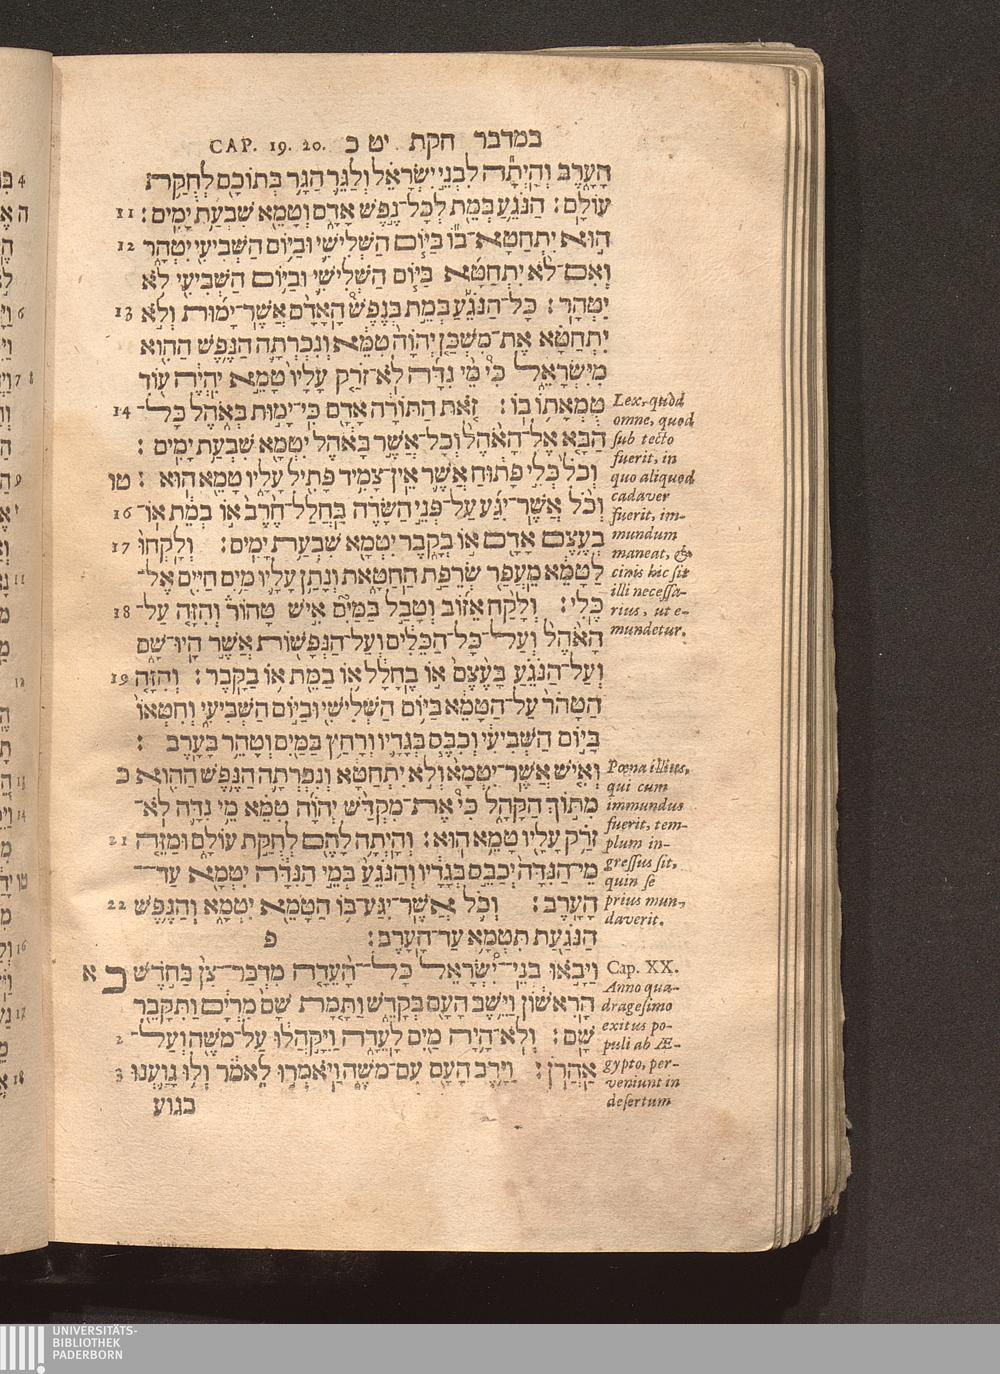 במדבר חקת יט כ CAP. 19. 20.
הָעָרֶב וְהָיְתָה לִבְנֵי יִשְׂרָאֵל וְלַגֵּר הַגָּר בְּתוֹכָם לְחֻקַּת
עוֹלָם׃ הַנֹּגֵעַ בְּמֵת לְכָל־נֶפֶשׁ אָדָם וְטָמֵא שִׁבְעַת יָמִים׃ 11
הוּא יִתְחַטָּא־בוֹ בַּיּוֹם הַשְּׁלִישִׁי וּבַיּוֹם הַשְּׁבִיעִי יִטְהָר 12
וְאִם־לֹא יִתְחַטָּא בַּיּוֹם הַשְּׁלִישִׁי וּבַיּוֹם הַשְּׁבִיעִי לֹא
יִטְהָר׃ כָּל־הַנֹּגֵעַ בְּמֵת בְּנֶפֶשׁ הָאָדָם אֲשֶׁר־יָמוּת וְלֹא 13
יִתְחַטָּא אֶת־מִשְׁכַּן יְהֹוָה טִמֵּא וְנִכְרְתָה הַנֶּפֶשׁ הַהִוא
מִיִּשְׂרָאֵל כִּי מֵי נִדָּה לֹא־זֹרַק עָלָיו טָמֵא יִהְיֶה עוֹד
טֻמְאָתוֹ בוֹ׃ זֹאת הַתּוֹרָה אָדָם כִּי־יָמוּת בְּאֹהֶל כָּל־ 14
הַבָּא אֶל־הָאֹהֶל וְכָל־אֲשֶׁר בָּאֹהֶל יִטְמָא שִׁבְעַת יָמִים׃
וְכֹל כְּלִי פָתוּחַ אֲשֶׁר אֵין־צָמִיד פָּתִיל עָלָיו טָמֵא הוּא׃ טו
וְכֹל אֲשֶׁר־יִגַּע עַל־פְּנֵי הַשָּׂדֶה בַּחֲלַל־חֶרֶב אוֹ בְמֵת אוֹ־ 16
בְעֶצֶם אָדָם אוֹ בְקָבֶר יִטְמָא שִׁבְעַת יָמִים׃ וְלָקְחוּ 17
לַטָּמֵא מֵעֲפַר שְׂרֵפַת הַחַטָּאת וְנָתַן עָלָיו מַיִם חַיִּים אֶל־
כֶּלִי׃ וְלָקַח אֵזוֹב וְטָבַל בַּמַּיִם אִישׁ טָהוֹר וְהִזָּה עַל־ 18
הָאֹהֶל וְעַל־כָּל־הַכֵּלִים וְעַל־הַנְּפָשׁוֹת אֲשֶׁר הָיוּ־שָׁם
וְעַל־הַנֹּגֵעַ בָּעֶצֶם אוֹ בֶחָלָל אוֹ בַמֵּת אוֹ בַקָּבֶר׃ וְהִזָּה 19
הַטָּהֹר עַל־הַטָּמֵא בַּיּוֹם הַשְּׁלִישִׁי וּבַיּוֹם הַשְּׁבִיעִי וְחִטְּאוֹ
בַּיּוֹם הַשְּׁבִיעִי וְכִבֶּס בְּגָדָיו וְרָחַץ בַּמַּיִם וְטָהֵר בָּעָרֶב׃
וְאִישׁ אֲשֶׁר־יִטְמָא וְלֹא יִתְחַטָּא וְנִכְרְתָה הַנֶּפֶשׁ הַהִוא כ
מִתּוֹךְ הַקָּהָל כִּי אֶת־מִקְדַּשׁ יְהוָה טִמֵּא מֵי נִדָּה לֹא־
זֹרַק עָלָיו טָמֵא הוּא׃ וְהָיְתָה לָהֶם לְחֻקַּת עוֹלָם וּמַזֵּה 21
מֵי־הַנִּדָּה יְכַבֵּס בְּגָדָיו וְהַנֹּגֵעַ בְּמֵי הַנִּדָּה יִטְמָא עַד־
הָעָרֶב׃ וְכֹל אֲשֶׁר־יִגַּע־בּוֹ הַטָּמֵא יִטְמָא וְהַנֶּפֶשׁ 22
הַנֹּגַעַת תִּטְמָא עַד־הָעָרֶב׃ פ
וַיָּבֹאוּ בְנֵי־יִשְׂרָאֵל כָּל־הָעֵדָה מִדְבַּר־צִן בַּחֹדֶשׁ כ א
הָרִאשׁוֹן וַיֵּשֶׁב הָעָם בְּקָדֵשׁ וַתָּמָת שָׁם מִרְיָם וַתִּקָּבֵר
שָׁם׃ וְלֹא־הָיָה מַיִם לָעֵדָה וַיִּקָּהֲלוּ עַל־מֹשֶׁה וְעַל־ 2
אַהֲרֹן׃ וַיָּרֶב הָעָם עִם־מֹשֶׁה וַיֹּאמְרוּ לֵאמֹר וְלוּ גָוַעְנוּ 3
בגוע
Lex, quòd
omne, quod
sub tecto
fuerit, in
quo aliquod
cadaver
fuerit, im-
mundum
maneat, &
cinis hic sit
illi necessa-
rius, ut e-
mundetur.
Pœna illius,
qui cum
immundus
fuerit, tem-
plum in-
gressus sit,
quin se
prius mun-
daverit.
Cap. XX.
Anno qua-
dragesimo
exitus po-
puli ab Æ-
gypto, per-
veniunt in
desertum
UNIVERSITÄTS-
BIBLIOTHEK
PADERBORN